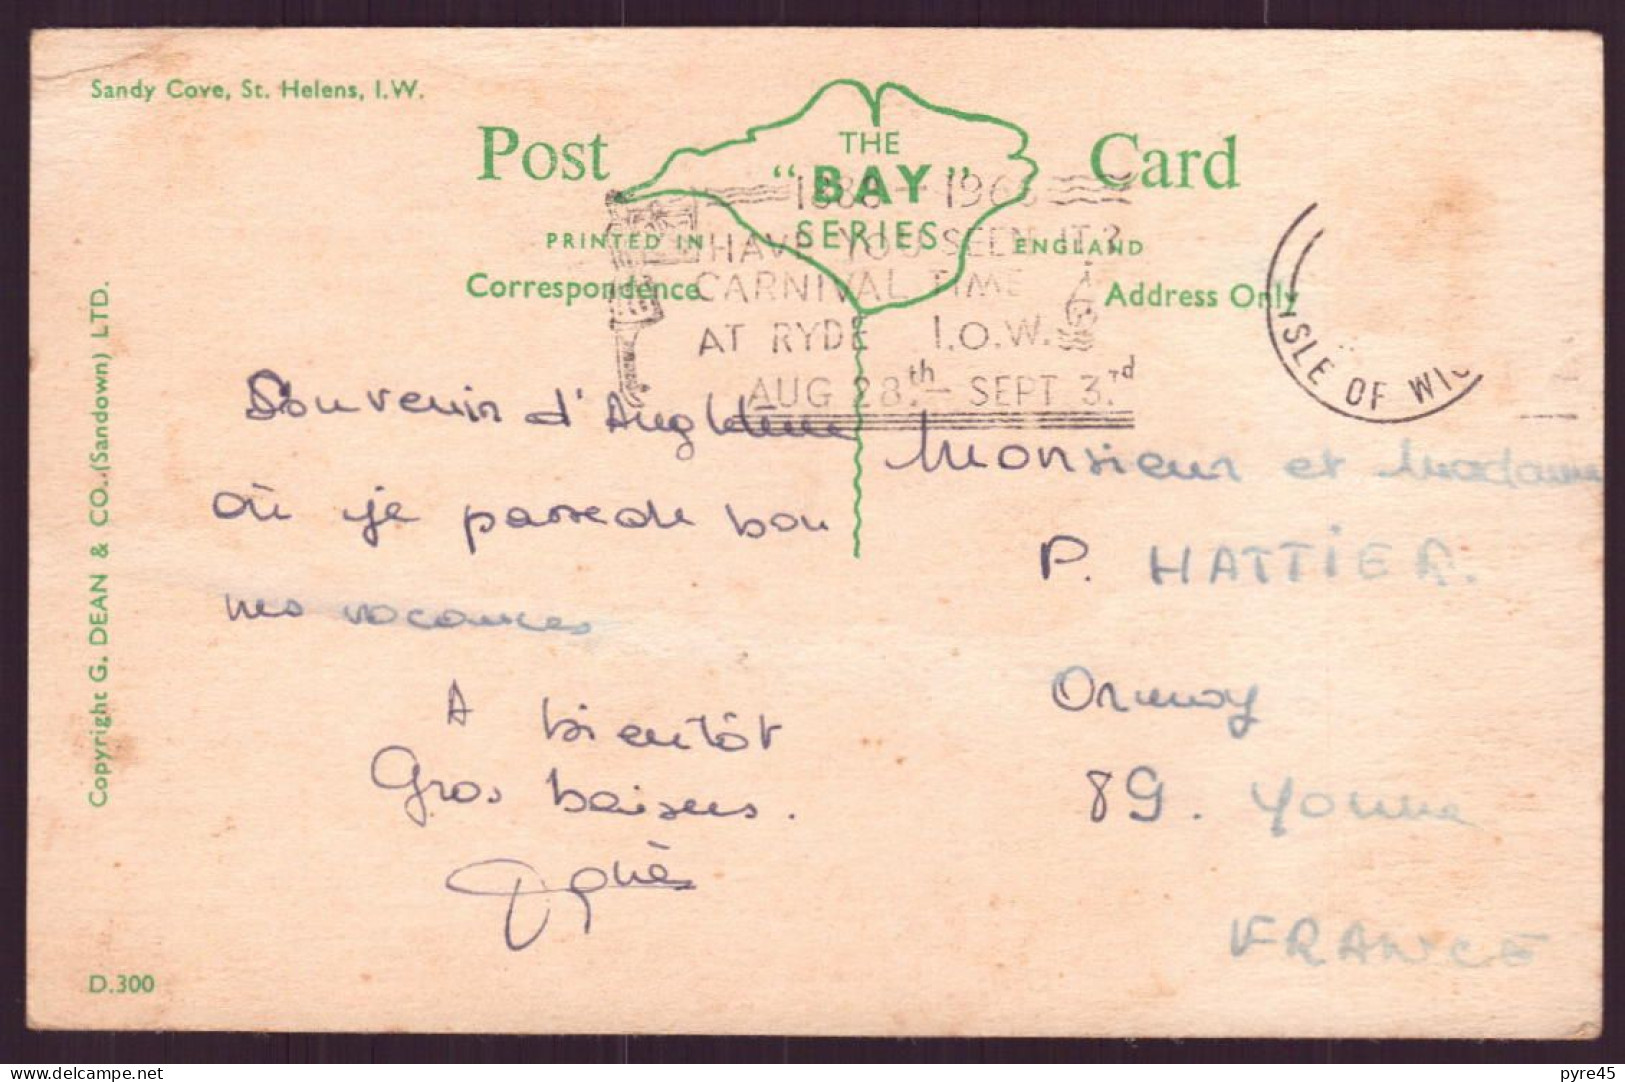 Sandy Cove, St. Helens, I.W.
Post Card
THE
"BAY"
SERIES
PRINTED IN ENGLAND
Correspondence
Address Only
1888 – 196
HAVE YOU SEEN IT?
CARNIVAL TIME
AT RYDE I.O.W.
AUG 28.th – SEPT 3.rd
ISLE OF WI
Souvenir d'Angleterre
où je passe de bon
mes vacances
A bientôt
Gros baisers.
Agnès
Monsieur et Madame
P. HATTIER.
Ormoy
89. Yonne
FRANCE
Copyright G. DEAN & CO.,(Sandown) LTD.
D.300
pyre45